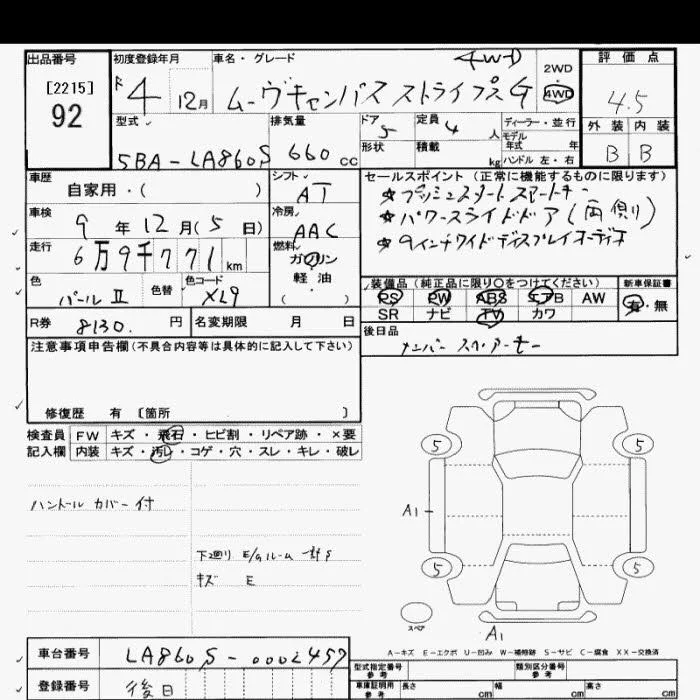 出品番号
[2215]
92
初度登録年月
R4 12月
車名・グレード
4WD
ムーヴキャンバス ストライプスG
2WD
・
4WD
評価点
4.5
外装 内装
B B
型式
5BA-LA860S
排気量
660 cc
ドア 5
形状
定員 4 人
積載 kg
ディーラー・並行
モデル
年式 年
ハンドル 左・右
車歴
自家用・( )
シフト
AT
車検
9年12月(5日)
冷房
AAC
走行
6万9千771km
燃料
ガソリン
軽油
( )
色
パールⅡ
色替
色コード
XL9
R券
8130. 円
名変期限 月 日
セールスポイント(正常に機能するものに限ります)
★プッシュスタートスマートキー
★パワースライドドア(両側)
★9インチワイドディスプレイオーディオ
装備品(純正品に限り○をつけてください)
新車保証書
PS PW ABS エアB AW
SR ナビ TV カワ
有・無
後日品
ナンバー スペアーキー
注意事項申告欄(不具合内容等は具体的に記入して下さい)
修復歴 有 〔箇所 〕
検査員
記入欄
FW キズ・飛石・ヒビ割・リペア跡・×要
内装 キズ・汚レ・コゲ・穴・スレ・キレ・破レ
ハンドル カバー付
下廻り E/Gルーム 一部S
キズ E
5 5
A1
5 5
スペア
A1
A-キズ E-エクボ U-凹み W-補修跡 S-サビ C-腐食 XX-交換済
車台番号
LA860S-0002457
登録番号
後日
型式指定番号
参考
類別区分番号
参考
車庫証明用
参考
長さ cm
幅 cm
高さ cm